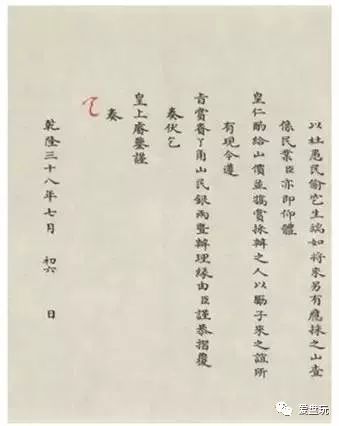 以杜愚民偷穵生端如將來另有應採之山查
係民業臣亦即仰體
皇仁酌給山價並犒賞採辦之人以勵子來之誼所
有現今遵
旨賞賚了角山民銀兩暨辦理緣由臣謹恭摺覆
奏伏乞
皇上睿鑒謹
奏
乾隆三十八年七月 初六 日
爱盘玩